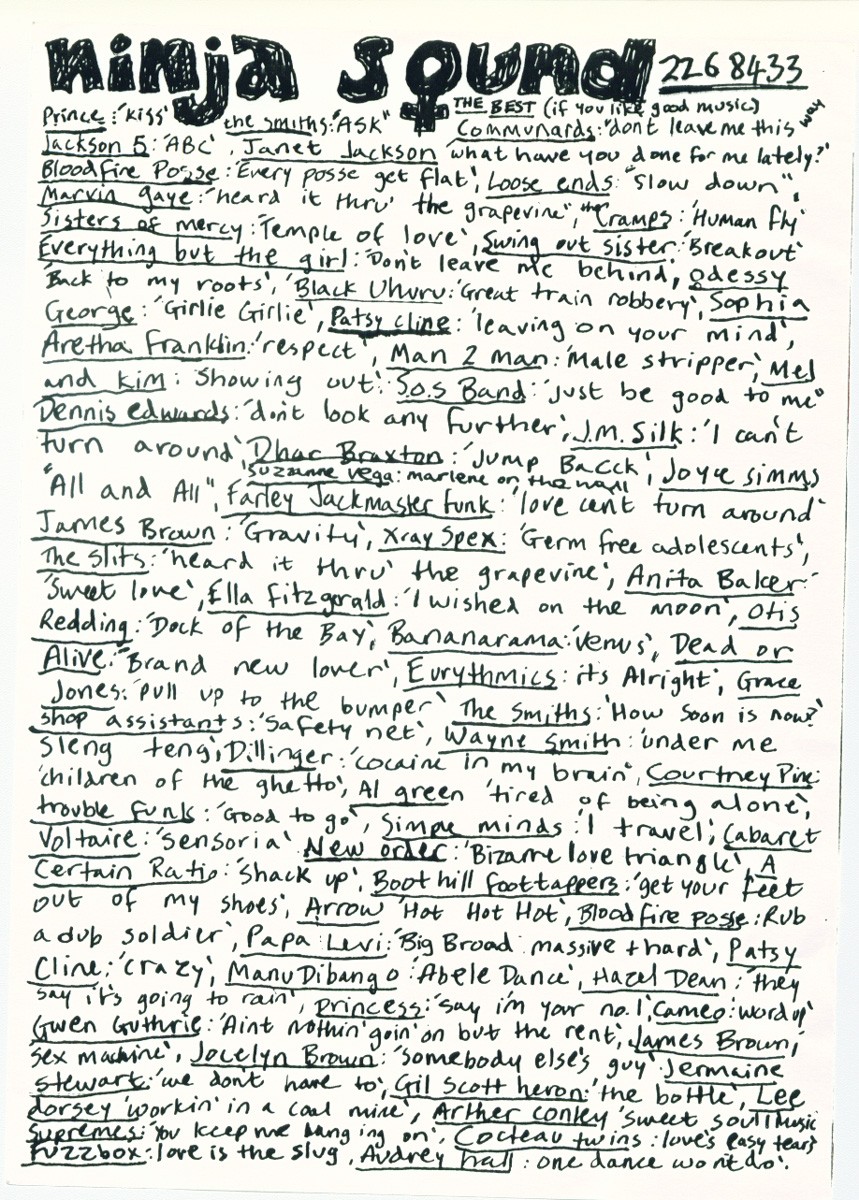 ninja sound 226 8433
THE BEST (if you like good music)
Prince: 'Kiss' the smiths: "ASK" Communards: "don't leave me this way
Jackson 5: 'ABC', Janet Jackson what have you done for me lately?'
Bloodfire Posse: 'Every posse get flat', Loose ends: "slow down",
Marvin gaye: 'heard it thru' the grapevine", the Cramps: 'Human fly'
Sisters of mercy: 'Temple of love', Swing out sister: 'Breakout'
Everything but the girl: 'Don't leave me behind, odessy
'Back to my roots', 'Black Uhuru: 'Great train robbery', Sophia
George: 'Girlie Girlie', Patsy cline: 'leaving on your mind',
Aretha Franklin: 'respect', Man 2 man: 'Male stripper', Mel
and kim: Showing out'. S.O.S Band: 'just be good to me"
Dennis edwards: 'don't look any further', J.M. Silk: 'I can't
turn around' Dhar Braxton: 'Jump BaCck', Joyce simms
suzzanne vega: marlene on the wall
"All and All", Farley Jackmaster funk: 'love can't turn around'
James Brown: 'Gravity', Xray Spex: 'Germ free adolescents',
The slits: 'heard it thru' the grapevine', Anita Baker:
'Sweet love', Ella fitzgerald: 'I wished on the moon', Otis
Redding: 'Dock of the Bay', Bananarama: 'venus', Dead or
Alive: "Brand new lover', Eurythmics: its Alright', Grace
Jones: 'pull up to the bumper' The Smiths: 'How soon is now?'
shop assistants: 'Safety net', Wayne Smith: 'under me
sleng teng', Dillinger: 'cocaine in my brain', Courtney Pine:
'children of the ghetto', Al green 'tired of being alone',
trouble funk: 'Good to go', Simpe minds: I travel', Cabaret
Voltaire: 'sensoria' New order: 'Bizarre love triangle', A
Certain Ratio: 'shack up', Boothill foottappers: 'get your feet
out of my shoes', Arrow 'Hot Hot Hot', Bloodfire posse: Rub
a dub soldier', Papa Levi: 'Big Broad massive + hard', Patsy
Cline: 'crazy', Manu Dibango 'Abele Dance', Hazel Dean: 'they
say it's going to rain', princess: 'say i'm your no.1', Cameo: 'word up'
Gwen Guthrie: 'Aint nothin' goin' on but the rent', James Brown,
sex machine', Jocelyn Brown: 'somebody else's guy' Jermaine
stewart: 'we don't have to', Gil Scott heron: 'the bottle', Lee
dorsey 'workin' in a coal mine', Arther conley 'sweet soul Music
Supremes: 'You keep me hanging on', Cocteau twins: love's easy tears
fuzzbox: love is the slug, Audrey hall: one dance wont do'.